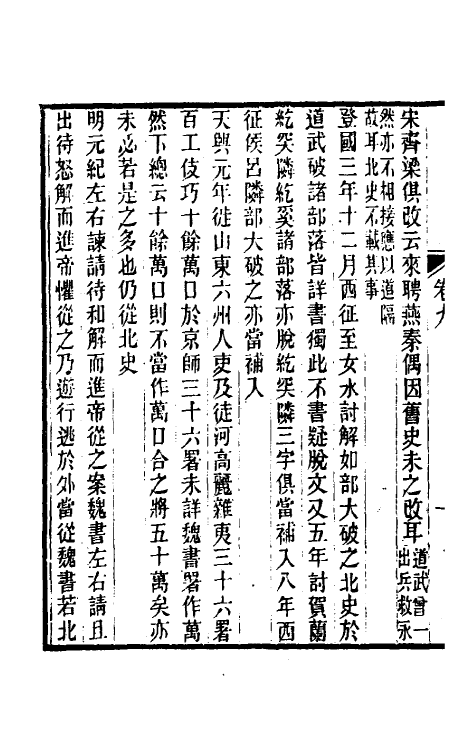 卷九
宋齊梁俱改云來聘燕秦偶因舊史未之改耳道武曾一出兵救永
然亦不相接應以道隔故耳北史不載其事
登國三年十二月西征至女水討解如部大破之北史於
道武破諸部落皆詳書獨此不書疑脫文又五年討賀蘭
紇突隣紇奚諸部落亦脫紇突隣三字俱當補入八年西
征侯呂隣部大破之亦當補入
天興元年徙山東六州人吏及徒河高麗雜夷三十六署
百工伎巧十餘萬口於京師三十六署未詳魏書署作萬
然下總云十餘萬口則不當作萬口合之將五十萬矣亦
未必若是之多也仍從北史
明元紀左右諫請待和解而進帝從之案魏書左右請且
出待怒解而進帝懼從之乃遊行逃於外當從魏書若北